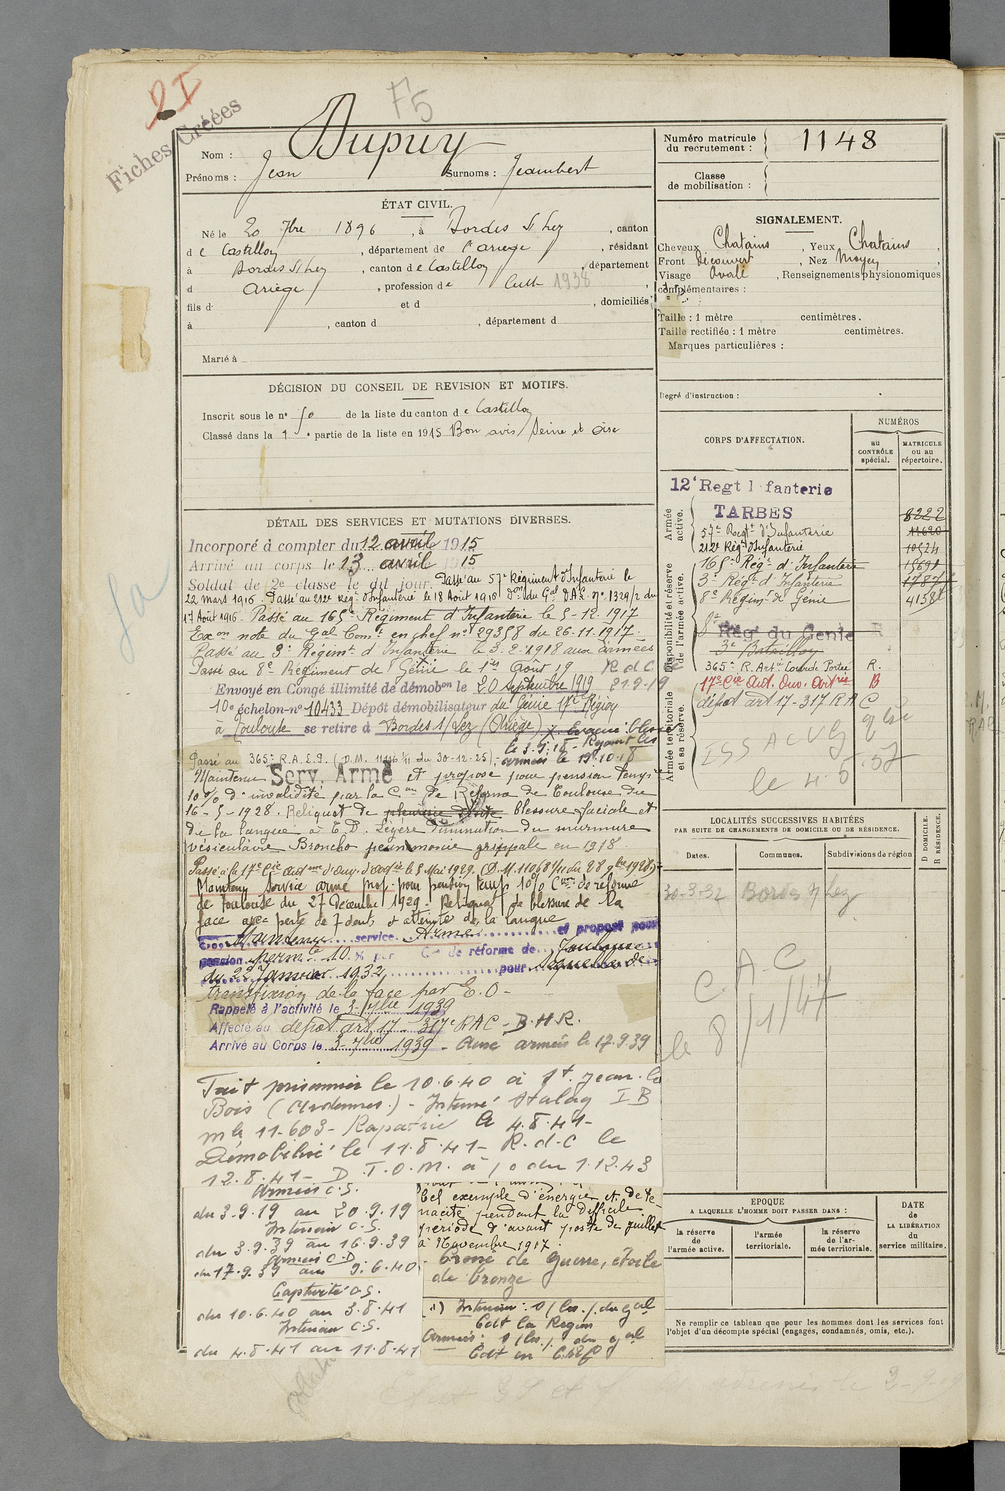 2I
F5
Fiches Créées
Nom : Dupuy
Prénoms : Jean Surnoms : Jeambert
Numéro matricule du recrutement : 1148
Classe de mobilisation :
ÉTAT CIVIL.
Né le 20 7bre 1896, à Bordes S/ Lez, canton
de Castillon, département de l'ariège, résidant
à Bordes S/ Lez, canton de Castillon, département
d Ariège, profession de Cult 1938,
fils d et d , domiciliés
à , canton d , département d
Marié à
SIGNALEMENT.
Cheveux Chatains, Yeux Chatains,
Front Découvert, Nez Moyen,
Visage Ovale, Renseignements physionomiques
complémentaires :
Taille : 1 mètre centimètres.
Taille rectifiée : 1 mètre centimètres.
Marques particulières :
Degré d'instruction :
DÉCISION DU CONSEIL DE REVISION ET MOTIFS.
Inscrit sous le n° 50 de la liste du canton de Castillon
Classé dans la 1e partie de la liste en 1915 Bon avis Seine et Oise
DÉTAIL DES SERVICES ET MUTATIONS DIVERSES.
Incorporé à compter du 12 avril 1915
Arrivé au corps le 13 avril 1915
Soldat de 2e classe le dit jour. Passé au 57e Régiment d'Infanterie le
22 mars 1916. Passé au 212e Rég' d'Infanterie le 18 Août 1916 don du Gal D.A.E. n° 1329/2 du
17 Août 1916. Passé au 165e Régiment d'Infanterie le 5-12-1917
Exon note du Gal Comt en chef n° 29358 du 26-11-1917-
Passé au 3e Régimt d'Infanterie le 3.2.1918 aux armées
Passé au 8e Régiment de Génie le 1er Août 19 R d C le
Envoyé en Congé illimité de démobon le 20 septembre 1919 21.9.19
10e échelon-n° 10433 Dépôt démobilisateur du Génie 17e Région
à Toulouse se retire à Bordes S/Lez (Ariège)
Passé au 365e R.A.E.9. du 30-12-25)
Maintenu Serv. Armé et proposé pour pension temp.
10% d'invalidité par la Con de Réforme de Toulouse du
16-5-1928. Reliquat de pleurésie droite blessure faciale et
de la langue à T.D. Légère diminution du murmure
vésiculaire Broncho pneumonie grippale en 1918
Passé à la 17e Cie autme d'ouv. d'artie le 5 Mai 1929.
Maintenu Service armé prop. pour pension temp. 10% Con de réforme
de Toulouse du 27 Décembre 1929. Reliquat de blessure de la
face avec perte de 7 dents et atteinte de la langue
Maintenu service Armé et proposé pour
pension permte 10 % par Con de réforme de Toulouse
du 22 Janvier 1932 pour séquelles de
transfixion de la face par E.O-
Rappelé à l'activité le 3 7bre 1939
Affecté au dépôt art 17 - 317e RAC - B.H.R.
Arrivé au Corps le 3 7bre 1939 - Aux armées le 17.9.39
Fait prisonnier le 10.6.40 à St. Jean. les
Bois (Ardennes.) - Interné Stalag I B
mle 11-603- Rapatrié le 4.8.41-
Démobilisé le 11.8.41- R.d.C le
12.8.41- D.T.O.M. à / o du 1.12.43
Armées C.S.
du 3.9.19 au 20.9.19
Intérieur C.S.
du 3.9.39 au 16.9.39
Armées C.D
du 17.9.39 au 9.6.40
Captivité C.S.
du 10.6.40 au 3.8.41
Intérieur C.S.
du 4.8.41 au 11.8.41
bel exemple d'énergie et de té
nacité pendant la difficile
période d'avant poste de juillet
à Novembre 1917.
Croix de Guerre, étoile
de bronze
CORPS D'AFFECTATION.
NUMÉROS
au CONTRÔLE spécial.
MATRICULE ou au répertoire.
Armée active.
12e Regt Infanterie
TARBES 8222
57e Régt d'Infanterie 11620
212e Régt d'Infanterie 10524
Disponibilité et réserve de l'armée active.
165e Régt d'Infanterie 15691
3e Régt d'Infanterie
8e Régimt de Génie
8e Rég. du Génie
3e Bataillon
365e R. Artie Lourde Portée R.
17e Cie Aut. Ouv. Artie B
dépôt art 17 - 317 R A C
Armée territoriale et sa réserve.
le 4.5.57
LOCALITÉS SUCCESSIVES HABITÉES
PAR SUITE DE CHANGEMENTS DE DOMICILE OU DE RÉSIDENCE.
D DOMICILE. R RÉSIDENCE.
Dates. Communes. Subdivisions de région
30-3-32 Bordes S/ Lez
C. A. C
le 8/1/47
EPOQUE
A LAQUELLE L'HOMME DOIT PASSER DANS :
la réserve de l'armée active.
l'armée territoriale.
la réserve de l'armée territoriale.
DATE de LA LIBÉRATION du service militaire.
Ne remplir ce tableau que pour les hommes dont les services font
l'objet d'un décompte spécial (engagés, condamnés, omis, etc.).